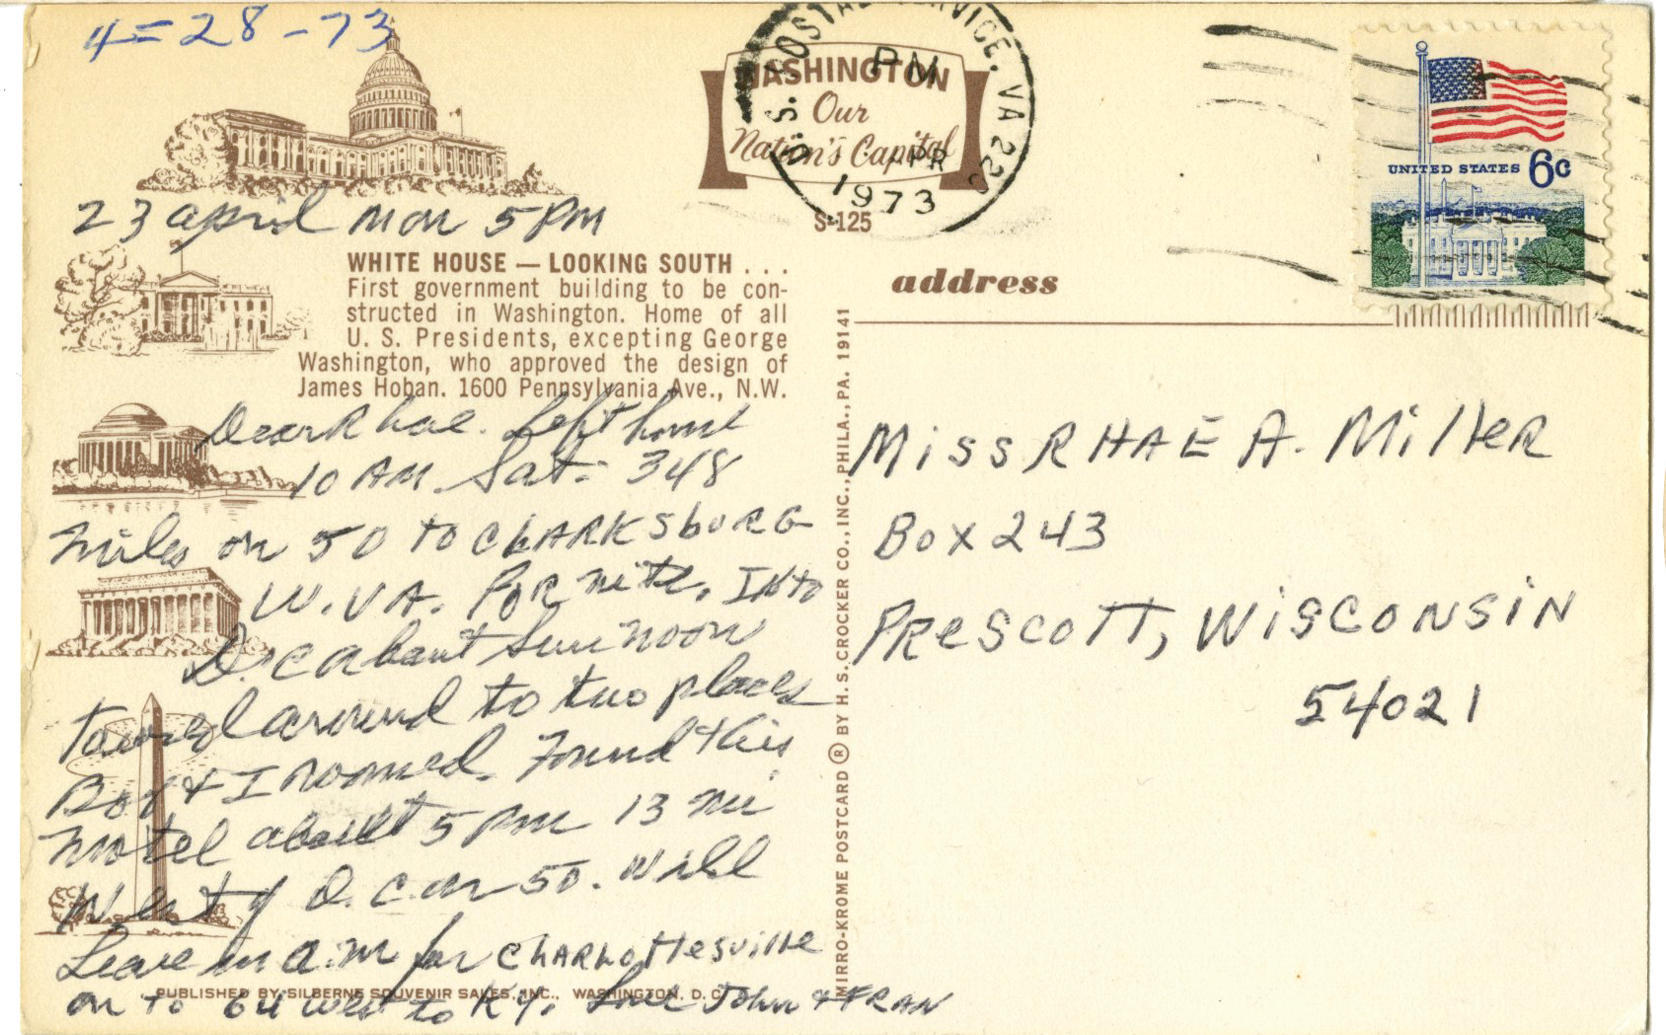 4-28-73
WASHINGTON
Our
Nation's Capital
S-125
U.S. POSTAL SERVICE, VA 220
PM
APR
1973
UNITED STATES 6c
23 april mon 5 pm
WHITE HOUSE — LOOKING SOUTH . . .
First government building to be con-
structed in Washington. Home of all
U. S. Presidents, excepting George
Washington, who approved the design of
James Hoban. 1600 Pennsylvania Ave., N.W.
address
Dear Rhae. Left home
10 AM Sat- 348
miles on 50 to CLARKSbURG
W.VA. FOR nite. Into
D.C about Sun noon
Toured around to two places
Boy & I roomed. Found this
motel about 5 pm 13 mi
West of D.C. on 50. Will
Leave in a.m for CHARLOTTesville
on to 64 west to KY. Love John & FRAN
PUBLISHED BY SILBERNE SOUVENIR SALES, INC., WASHINGTON, D. C.
MIRRO-KROME POSTCARD ® BY H. S. CROCKER CO., INC., PHILA., PA. 19141
Miss RHAE A. Miller
Box 243
PRescoTT, WiSCONSiN
54021